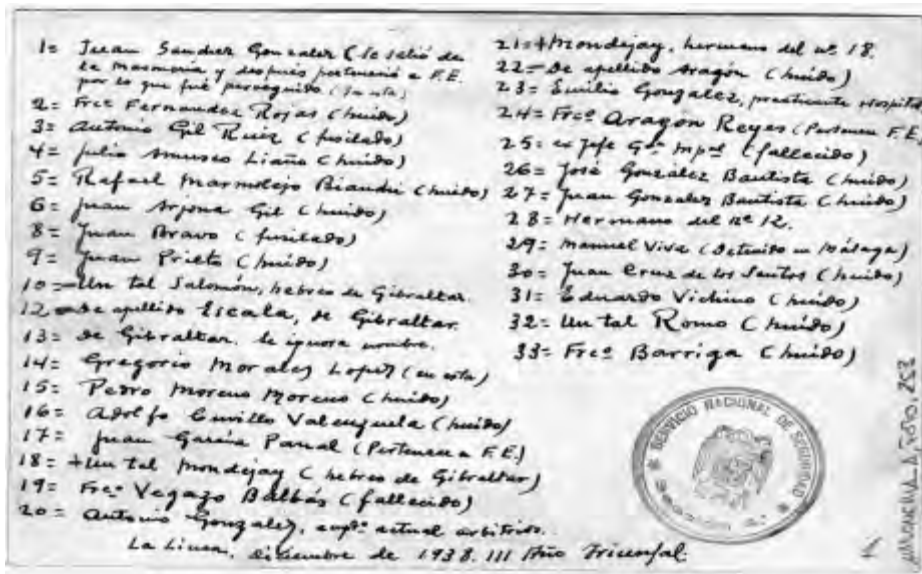 1= Juan Sanchez Gonzalez (Se salió de
la masonería y después perteneció a F.E.
por lo que fué perseguido (En esta)
2= Frcº Fernandez Rojas (huído)
3= Antonio Gil Ruiz (fusilado)
4= Julio Liaño (huído)
5= Rafael Marmolejo (huído)
6= Juan Arjona Gil (huído)
8= Juan Bravo (fusilado)
9= Juan Prieto (huído)
10= Un tal Salomón, hebreo de Gibraltar.
12= de apellido Escala, de Gibraltar.
13= de Gibraltar. Se ignora nombre.
14= Gregorio Morales Lopez (en esta)
15= Pedro Moreno Moreno (huído)
16= Adolfo Valenzuela (huído)
17= Juan García (Pertenece a F.E.)
18= + Un tal Mondejay (hebreo de Gibraltar)
19= Frcº Vegazo Balbás (fallecido)
20= Antonio Gonzalez, empº actual arbitrios.
La Linea, diciembre de 1938. III Año Triunfal.
21= + Mondejay, hermano del nº 18.
22= De apellido Aragón (huído)
23= Emilio Gonzalez, practicante Hospital
24= Frcº Aragon Reyes (Pertenece F.E.)
25= ex Jefe Gª Mpal (fallecido)
26= José González Bautista (huído)
27= Juan Gonzalez Bautista (huído)
28= Hermano del nº 12.
29= Manuel Viva (Detenido en Málaga)
30= Juan Cruz de los Santos (huído)
31= Eduardo Vichino (huído)
32= Un tal Romo (huído)
33= Frcº Barriga (huído)
SERVICIO NACIONAL DE SEGURIDAD